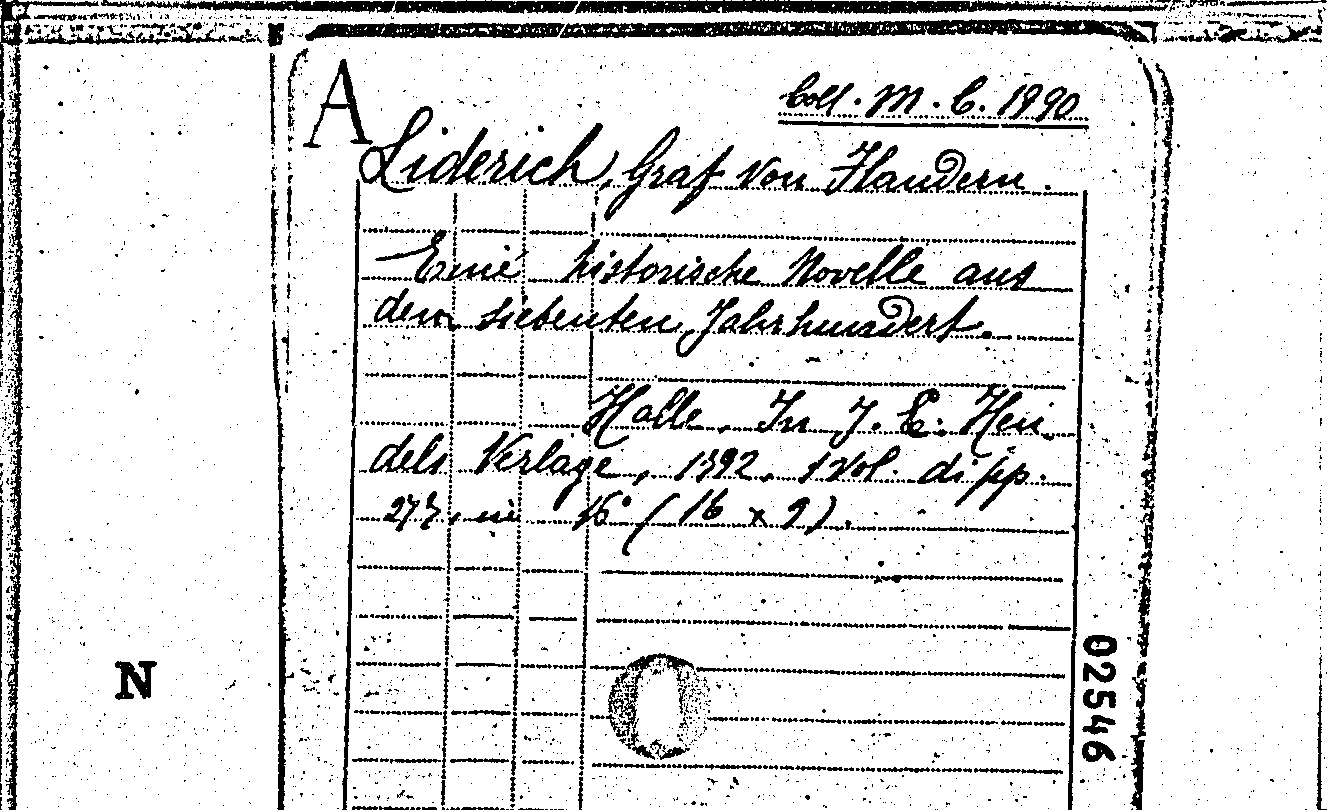 A
Coll. M. C. 1990
Liderich, Graf von Flandern.
Eine historische Novelle aus
dem siebenten Jahrhundert.
Halle. In J. C. Hen
dels Verlage, 1792. 1 Vol. di pp.
in 16° (16 x 9).
N
02546